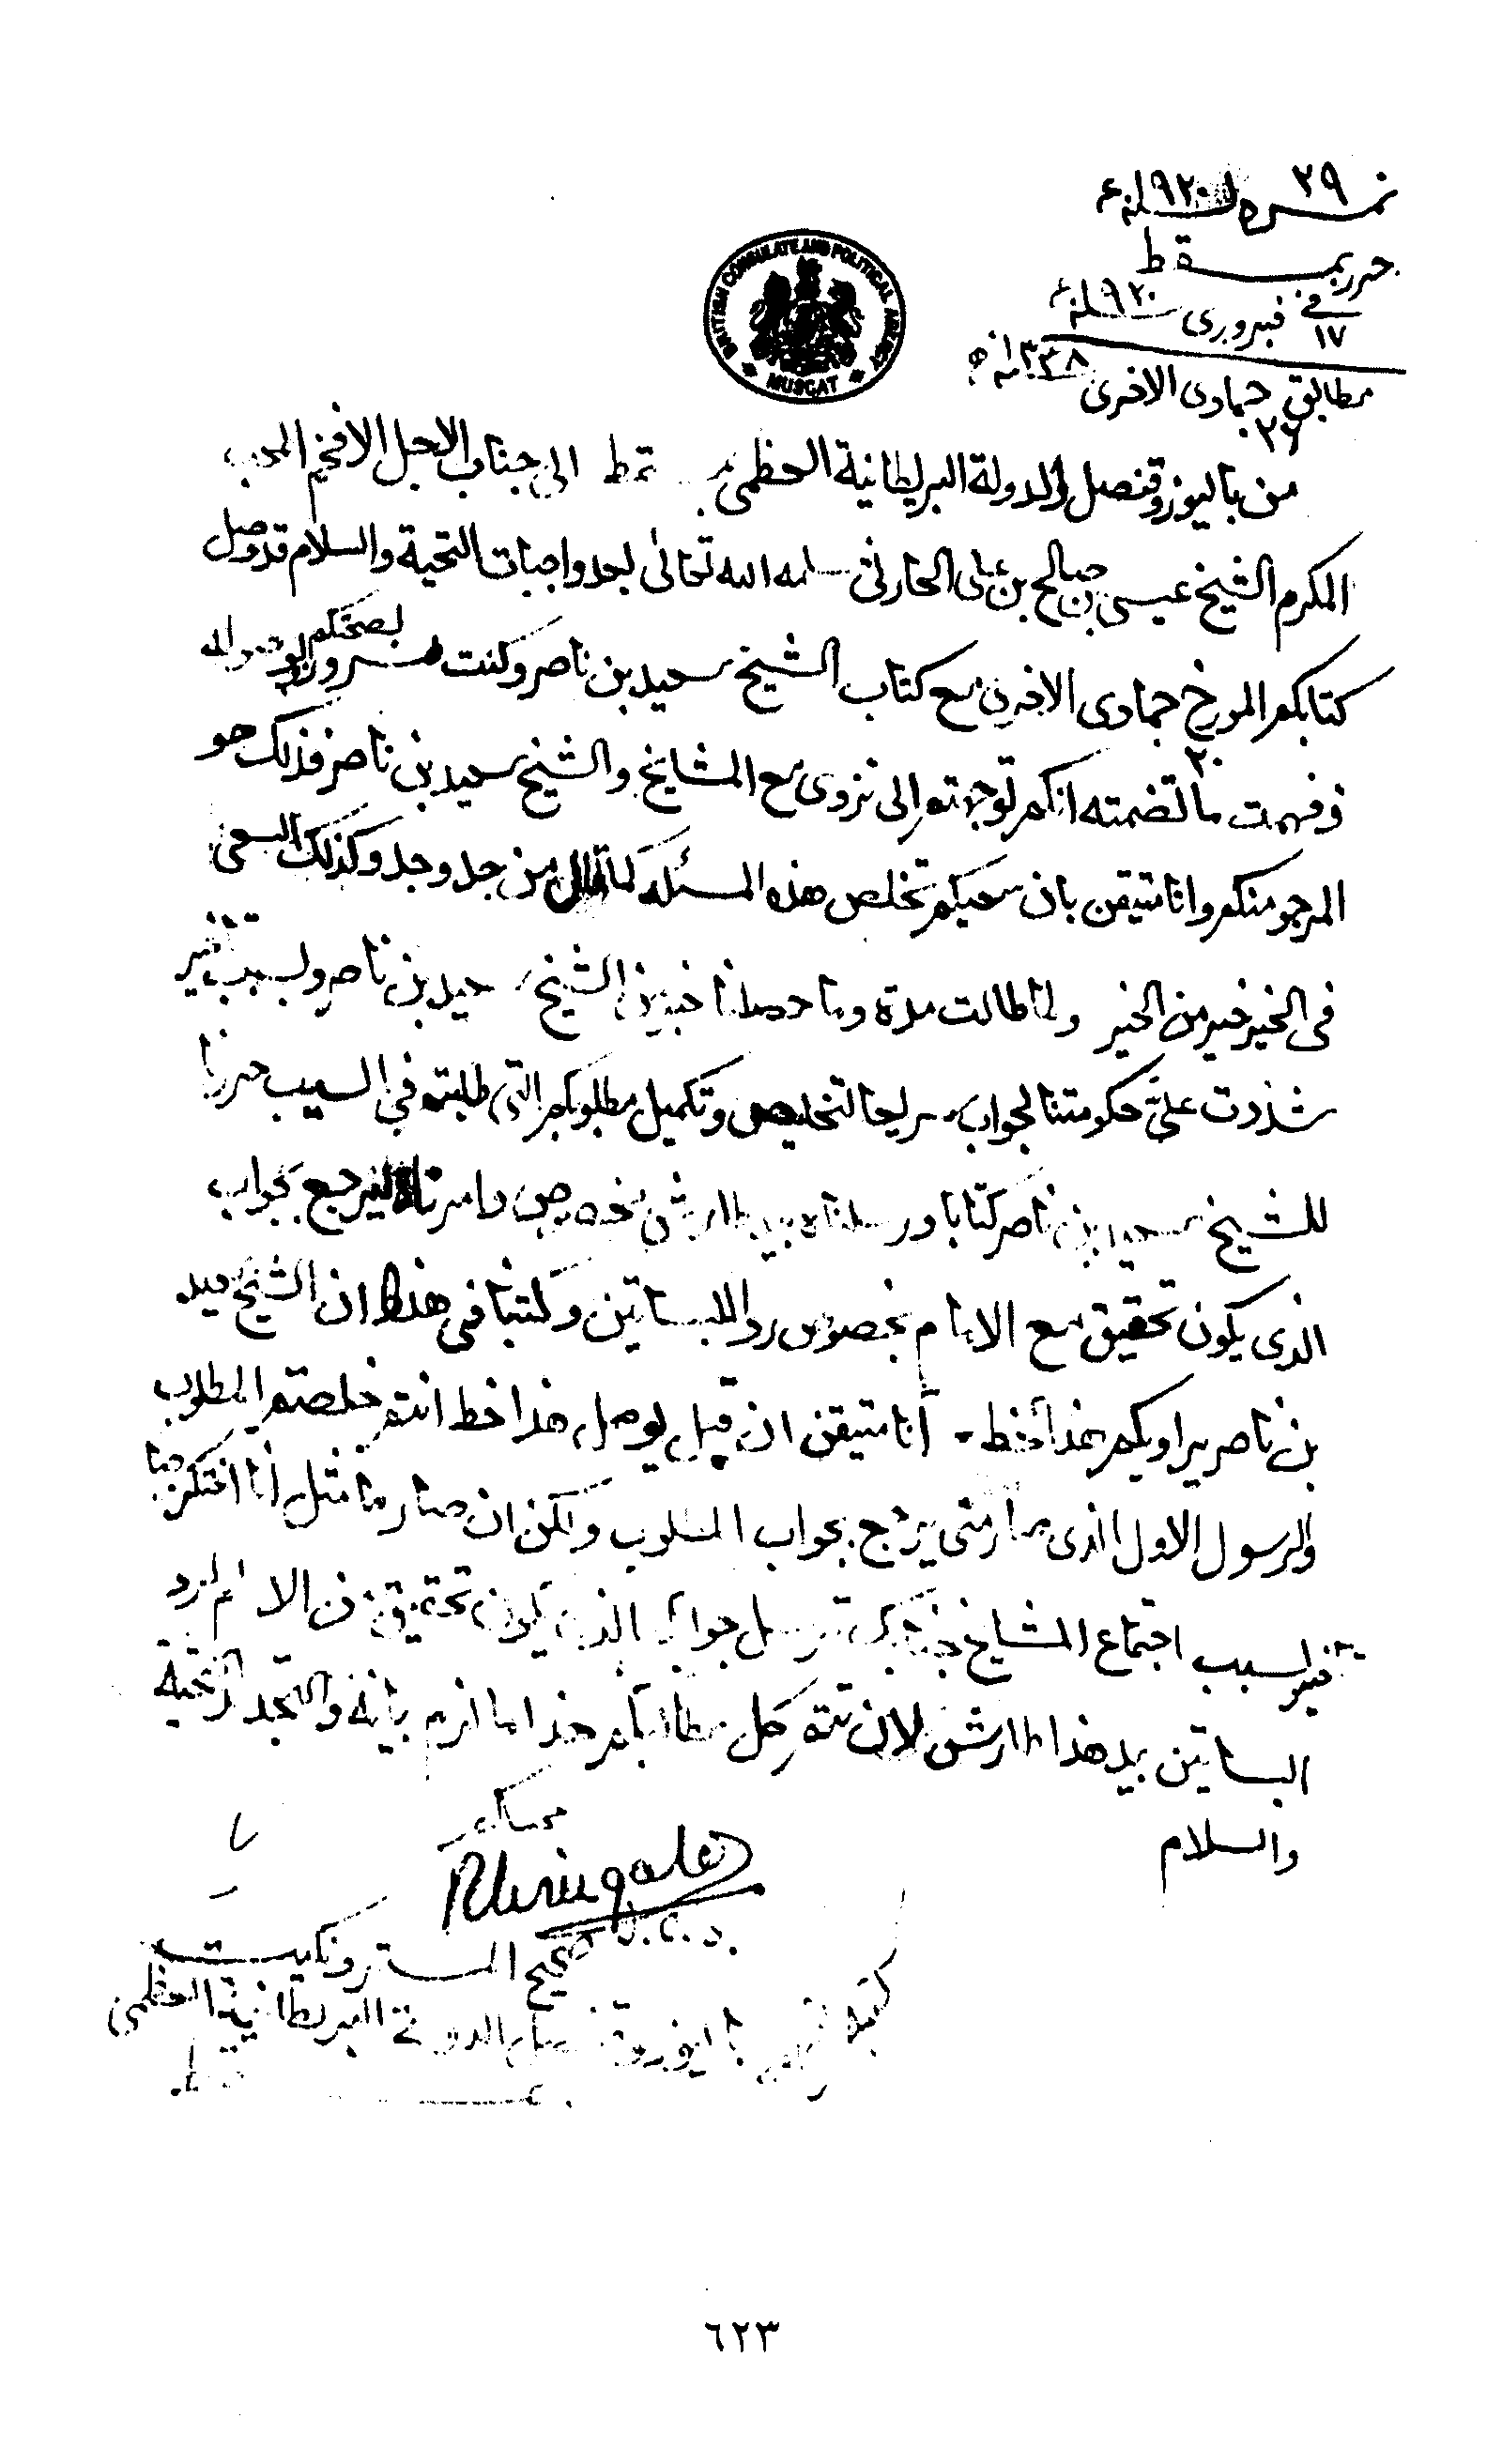 نمره ٢٩ لسنة ١٩٢٠ء
حرر بمسقط
في ١٧ فبروري سنة ١٩٢٠ء
مطابق ٢٦ جمادى الاخرى سنة ١٣٣٨ه
BRITISH CONSULATE AND POLITICAL AGENCY
MUSCAT
من باليوز وقنصل الدولة البريطانية العظمى الى جناب الاجل الافخم المحب
المكرم الشيخ عيسى بن صالح بن علي الحارثي سلمه الله تعالى بعد واجبات التحية والسلام قد وصل
كتابكم المورخ ٢٠ جمادى الاخرى مع كتاب الشيخ سعيد بن ناصر وكنت مسرورا بصحتكم
وفهمت ما تضمنته انكم توجهتم الى نزوى مع المشايخ والشيخ سعيد بن ناصر فذلك هو
المرجو منكم وانا متيقن بان سعيكم تخلص هذه المسئلة كما قال من جد وجد وكذلك السعي
في الخير خير من الخير ولما طالت مدة وما حصلنا خبر من الشيخ سعيد بن ناصر وبسبب تأخير
شددت عليّ حكومتنا لجواب سريعا لتخليص وتكميل مطلوبكم التي طلبتم في السيب حررنا
للشيخ سعيد بن ناصر كتابا ورسلناه بيد طارش مخصوص وامرناه ليرجع بجواب
الذي يكون تحقيق مع الامام بخصوص رد البساتين وكتبنا في هذا ان الشيخ سعيد
بن ناصر يراويكم هذا خط - أنا متيقن ان قبل يوصل هذا خط انتم خلصتم المطلوب
والرسول الاول الذي يرجع بجواب المطلوب ولكن ان صار ما مثل أنا افتكرنا
تأخير لسبب اجتماع المشايخ ترسل جواب الذي يكون تحقيق من الامام لرد
البساتين بيد هذا طارش لان تتم كل مطالبكم هذا ما لزم بيانه والتحية
والسلام
محبك
R Wingate
I.C.S.
صحيح المستر ونكيت
باليوز وقنصل الدولة البريطانية العظمى
٦٢٣